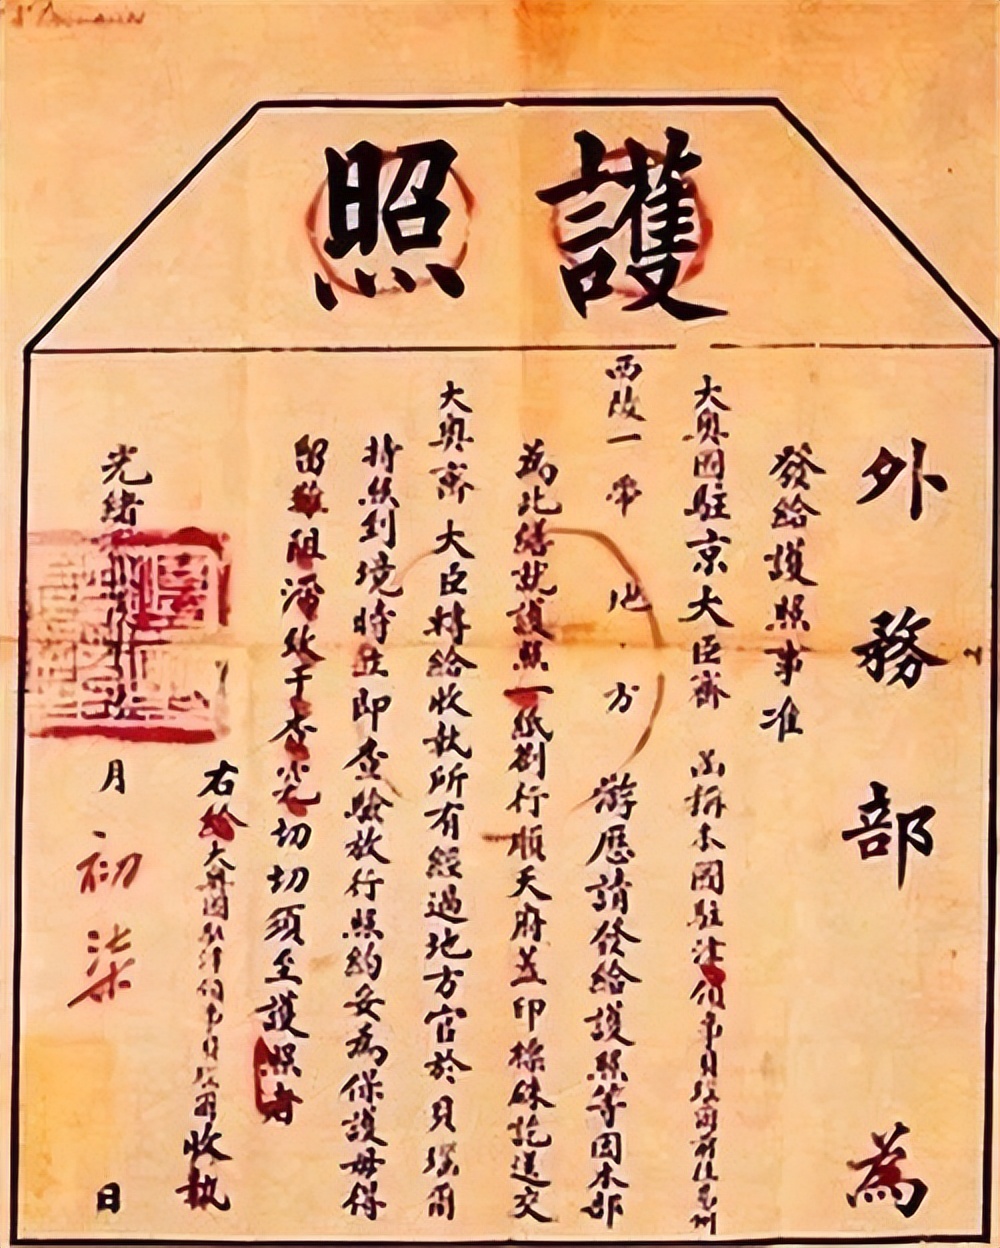 護照
外務部為
發給護照事准
大奧國駐京大臣齊 函稱本國駐津領事貝瑤爾前往
西陵一帶地方游歷請發給護照等因本部
為此繕就護照一紙劄行順天府蓋印標硃訖送交
大奧齊大臣轉給收執所有經過地方官於貝瑤爾
持照到境時立即查驗放行照約妥為保護毋得
留難阻滯致干查究切切須至護照者
右給大奧國駐津領事貝瑤爾收執
光緒
月初柒日